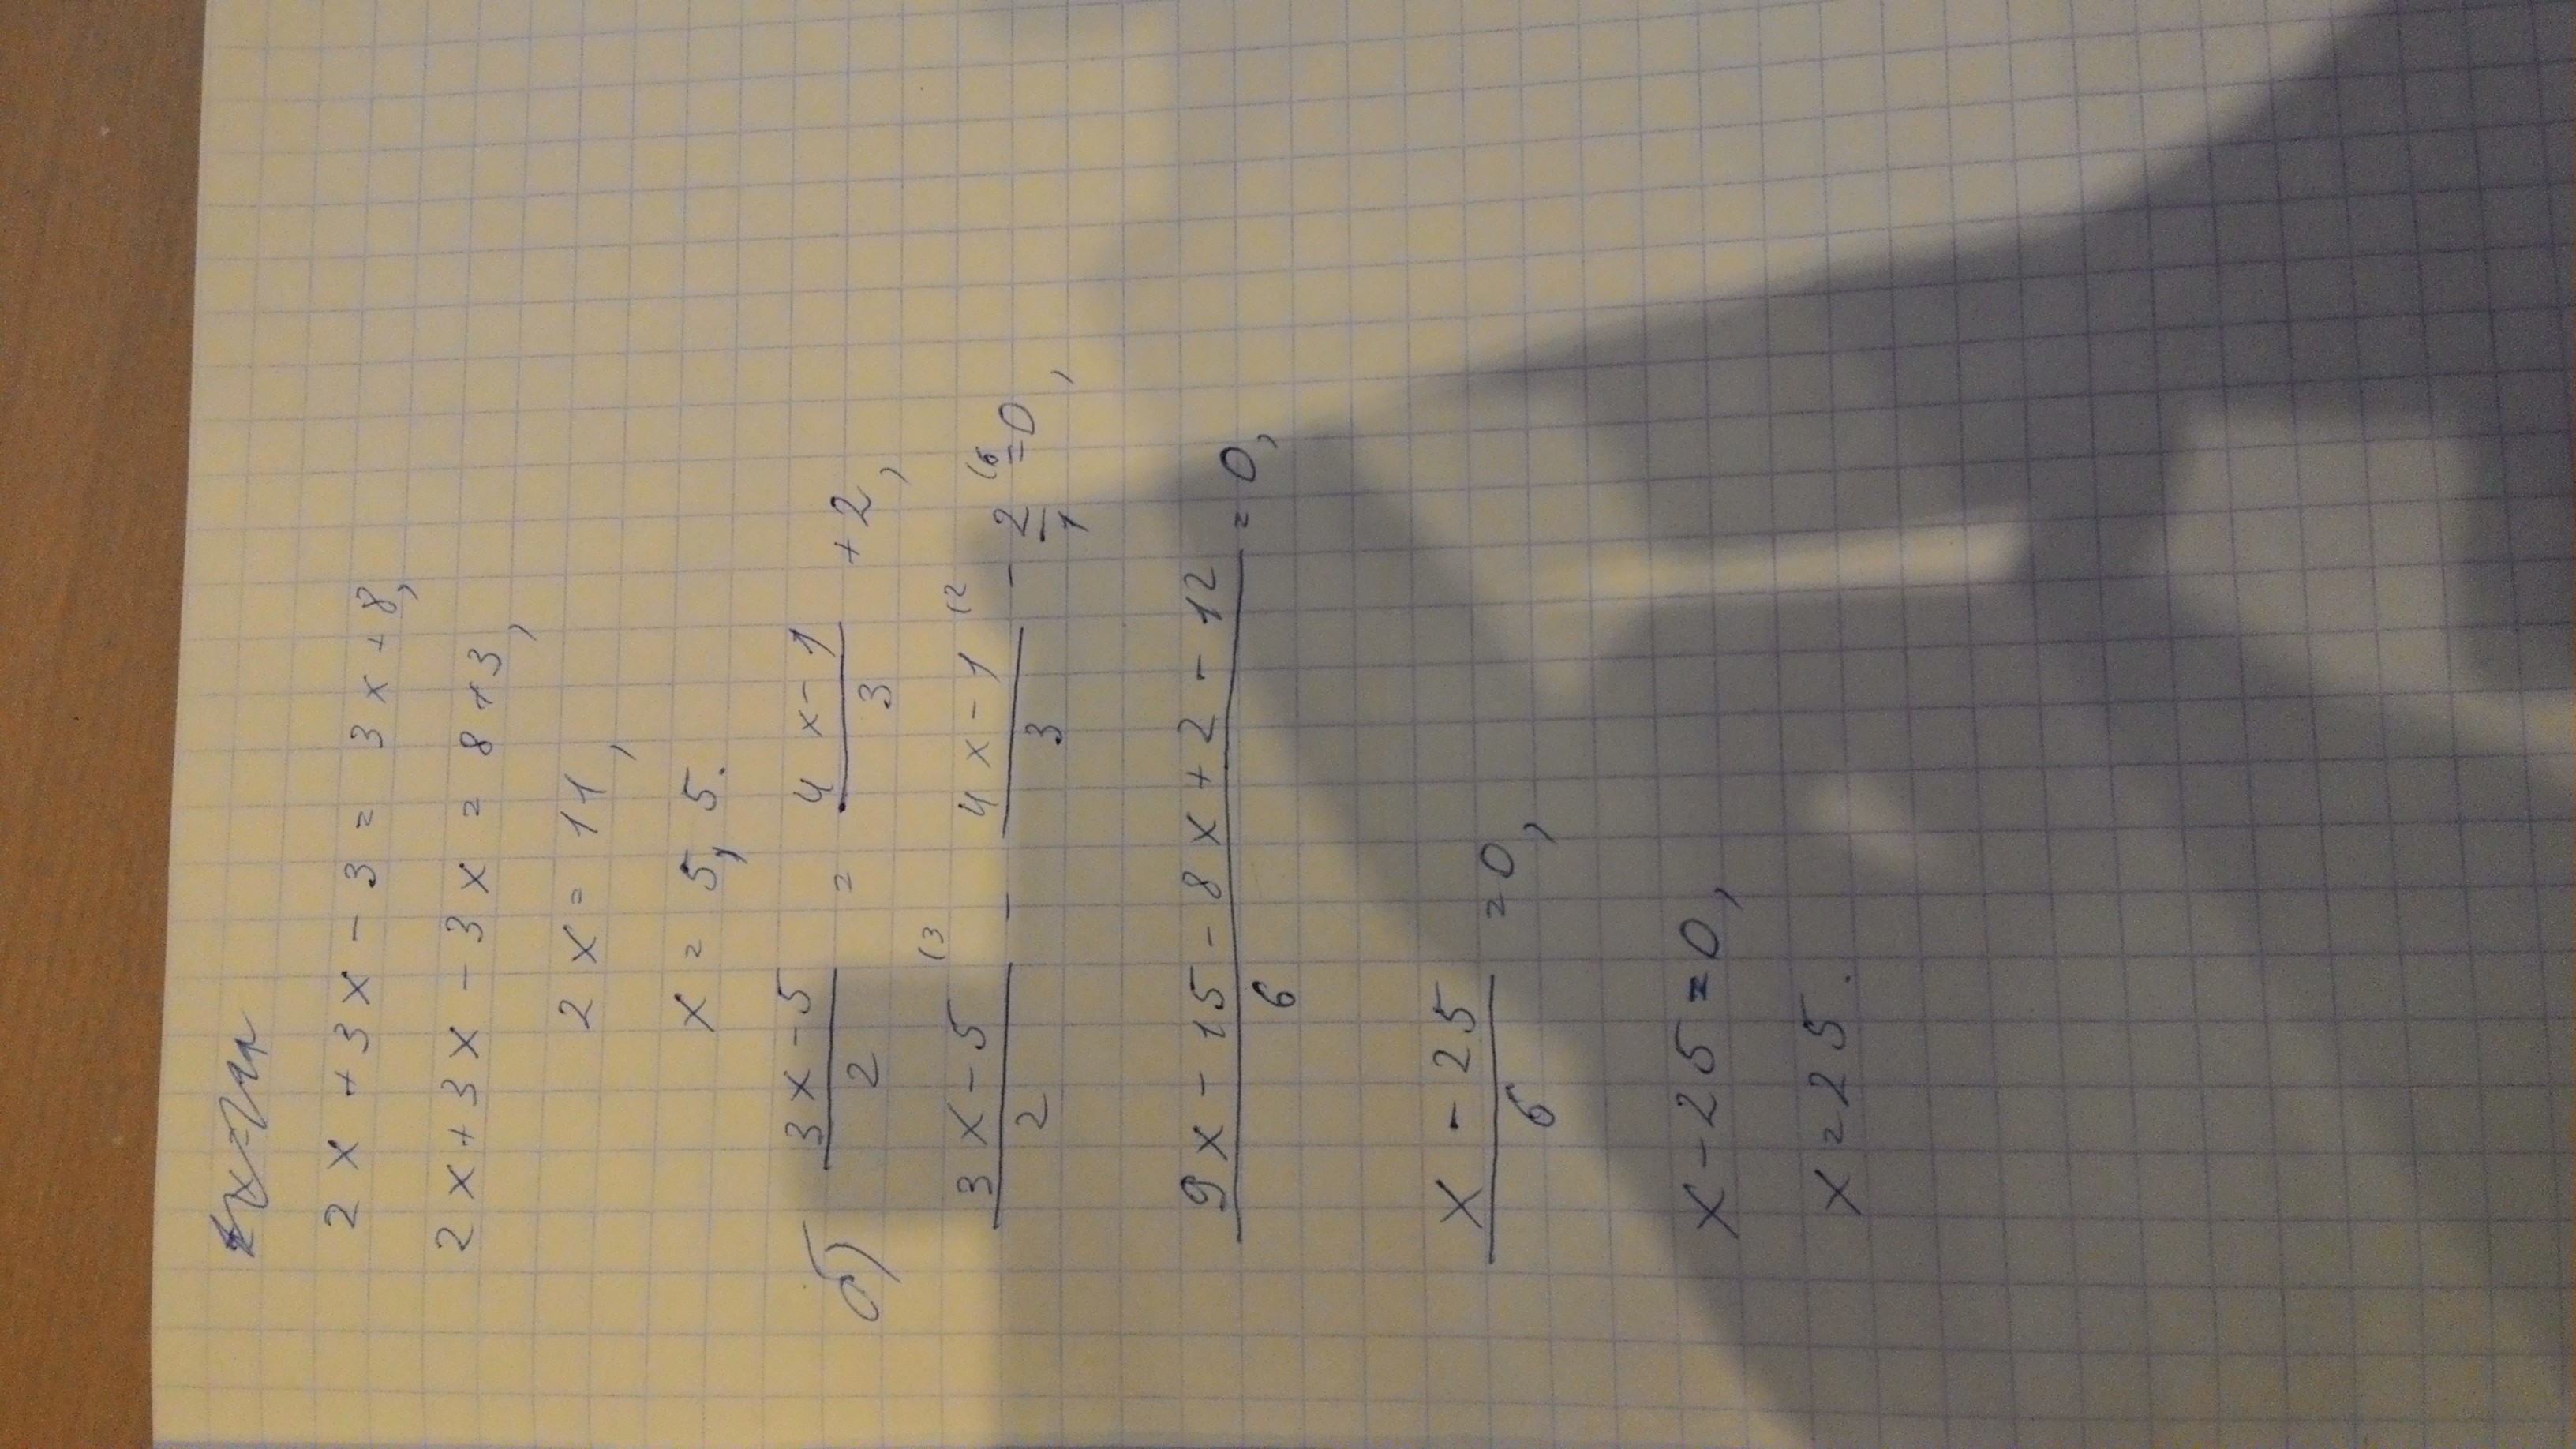 2x + 3x - 3 = 3x + 8,
2x + 3x - 3x = 8 + 3,
2x = 11,
x = 5,5.
б) (3x - 5)/2 = (4x - 1)/3 + 2,
(3x - 5)/2 (3 - (4x - 1)/3 (2 - 2/1 (6 = 0,
(9x - 15 - 8x + 2 - 12)/6 = 0,
(x - 25)/6 = 0,
x - 25 = 0,
x = 25.